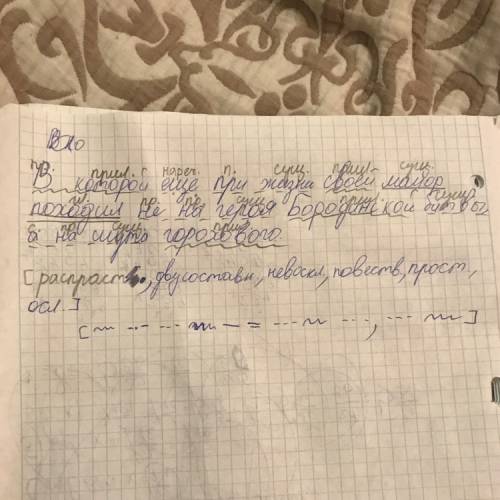 пр. прил. г. нареч. п. сущ. прил. сущ.
В которой еще при жизни своей майор
гл. пр. пр. сущ. прил. сущ.
походил не на героя Бородинской битвы
с. пр. прил.
а на шута горохового.
[распрост., двусоставн, невоскл, повеств, прост,
осл.]